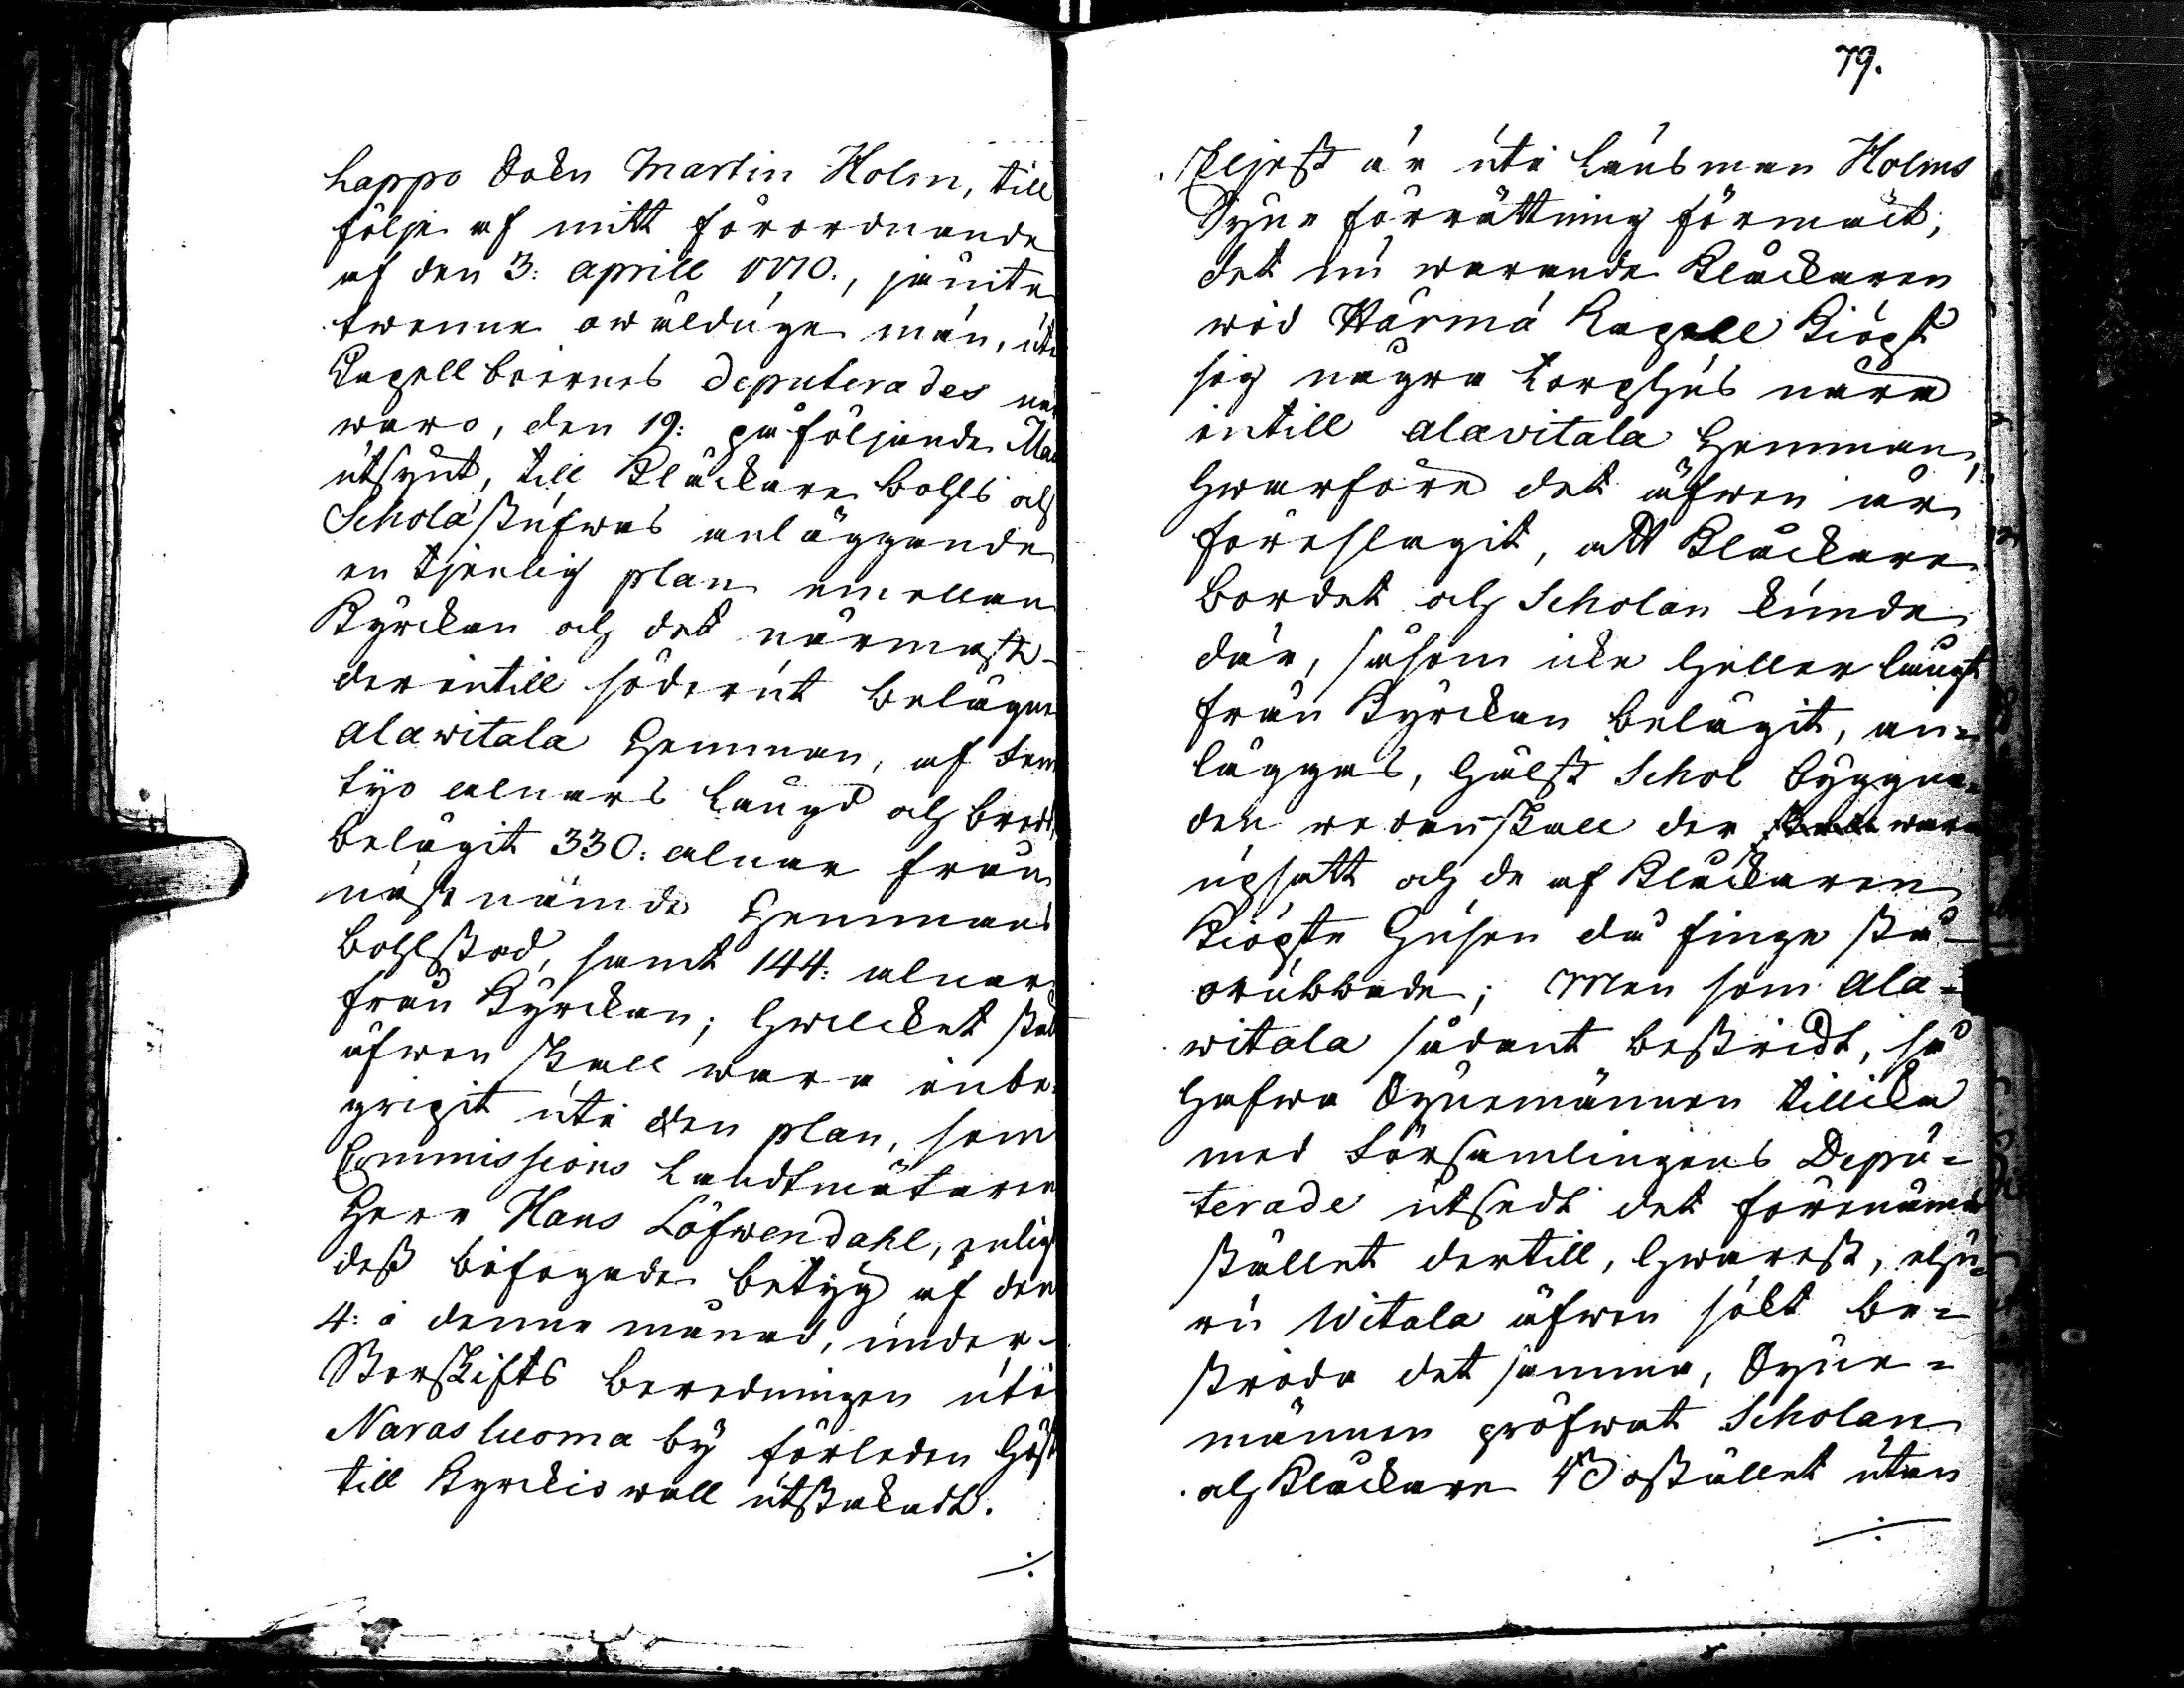 happo Sokn Martin Holm, till
följe af mitt förordnande
af den 3: aprill 1770., jämte
twenne owäldige män, uti
Capell boernes deputerades när
waro, den 19: påföljande Maii
utsynt, till Klåckare bohls och
Scholæ stufwas anläggande
en tjenlig plan emellan
Kyrckan och det närmast
derintill söderut belägne
alawitala Hemman, af Fem
tyo alnars längd och bredd,
belägit 330: alnar från
nästnämde Hemmans
bohlstad, samt 144: alnar
från Kyrckan; hwilcket stäl
äfwen skall wara inbe-
gripit uti den plan, som
Commissions Landtmätaren
Herr Hans Löfwendahl, enligt
dess bifogade betyg af den
4: i denne månad, under
Storskifts beredningen uti
Narasluoma by förleden höst
till Kyrckiowall utstakadt.
·/·
79.
Eljest är uti Länsman Holms
Syne förrättning förmält,
det nu warande Klåckaren
wid Härmä Capell kiöpt
sig några torphus nära
intill alavitala Hemman,
hwarföre det äfwen är
föreslagit, att Klåckare
bordet och Scholan kunde
där, såsom icke heller långt
från Kyrckan belägit, an-
läggas, hälst Schol bygna-
den redan skall der wara
upsatt och de af Klåckaren
kiöpte husen då finge stå
orubbade; Men som ala-
witala sådant bestridt, så
hafwa Synemännen tillika
med Församlingens Depu-
terade utsedt det förenämde
stället dertill, hwarest, ehu-
ru Witala äfwen sökt be-
strida det samma, Syne-
männen pröfwat Scholan
och Klåckare Bostället utan
·/·